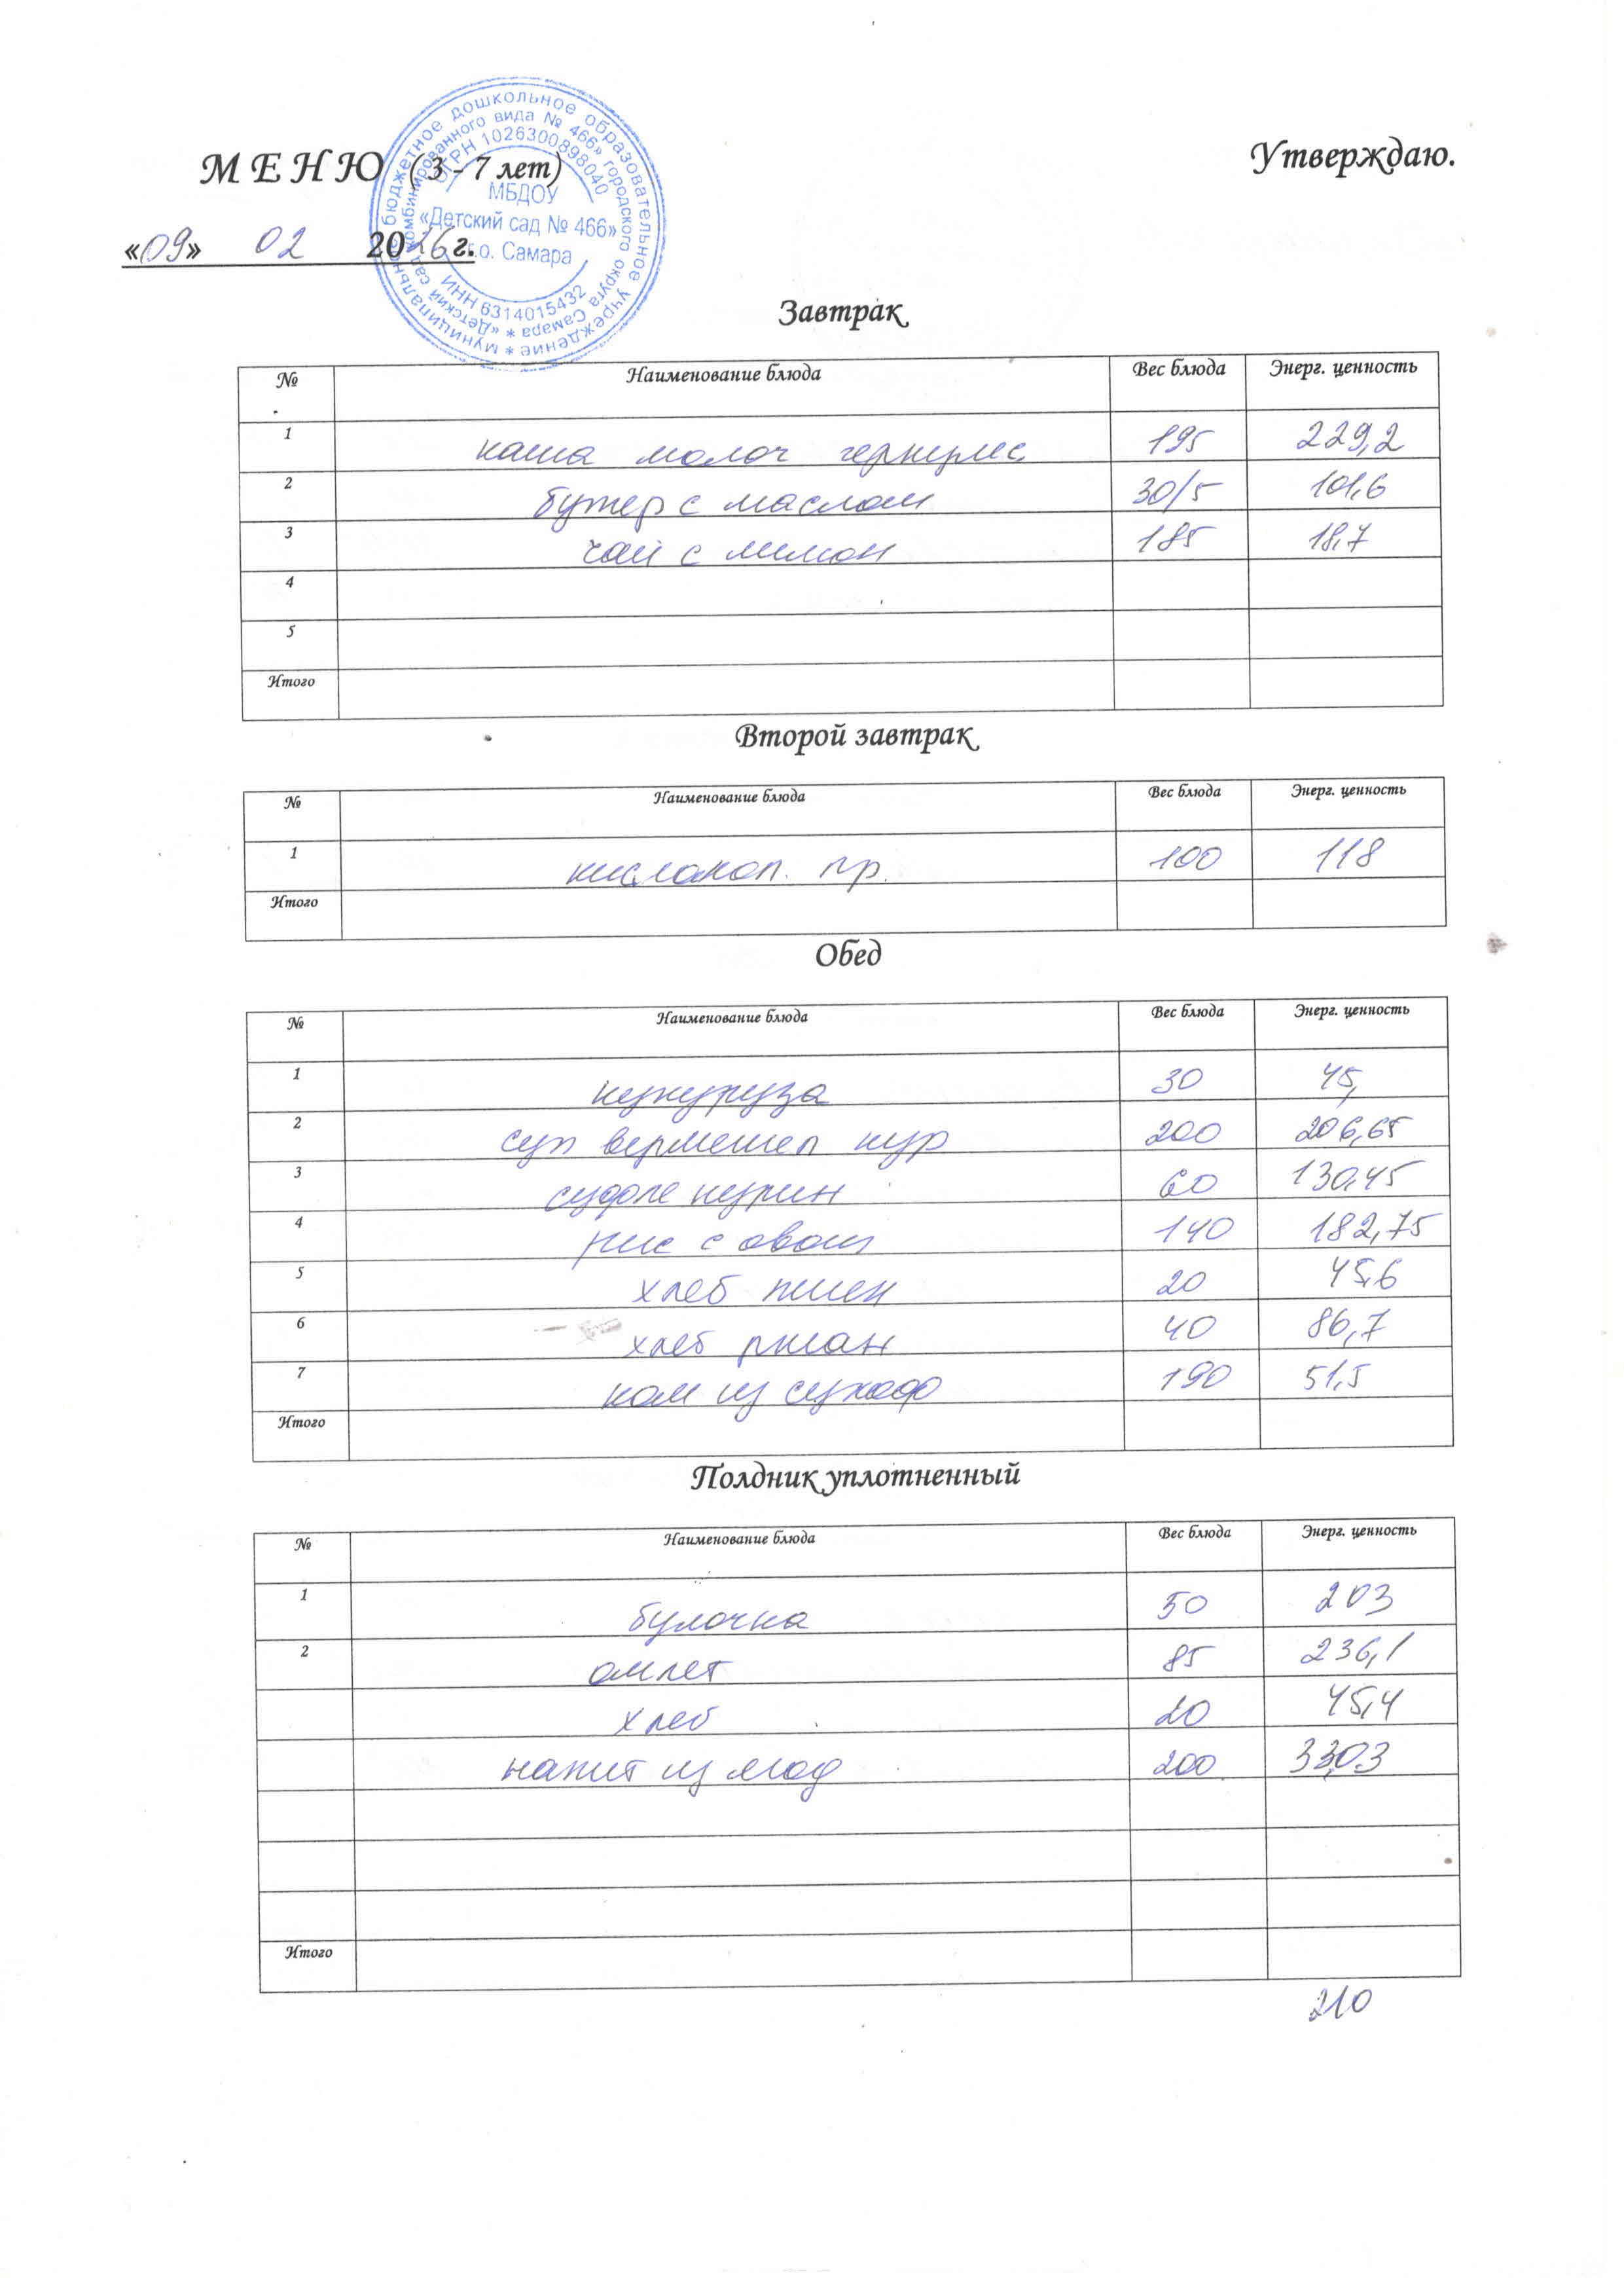 муниципальное бюджетное дошкольное образовательное учреждение *
«Детский сад комбинированного вида № 466» городского округа Самара *
ОГРН 1026300898040
МБДОУ
«Детский сад № 466»
г.о. Самара
ИНН 6314015432
МЕНЮ ( 3 - 7 лет) Утверждаю.
«09» 02 2026 г.
Завтрак
№ Наименование блюда Вес блюда Энерг. ценность
1 каша молоч геркулес 195 229,2
2 бутер с маслом 30/5 101,6
3 чай с лимон 185 18,7
4
5
Итого
Второй завтрак
№ Наименование блюда Вес блюда Энерг. ценность
1 кисломол. пр. 100 118
Итого
Обед
№ Наименование блюда Вес блюда Энерг. ценность
1 кукуруза 30 45,
2 суп вермешел кур 200 206,65
3 суфле курин 60 130,45
4 рис с овощ 140 182,75
5 хлеб пшен 20 45,6
6 хлеб ржан 40 86,7
7 ком из сухоф 190 51,5
Итого
Полдник уплотненный
№ Наименование блюда Вес блюда Энерг. ценность
1 булочка 50 203
2 омлет 85 236,1
хлеб 20 45,4
напит из ягод 200
Итого
210